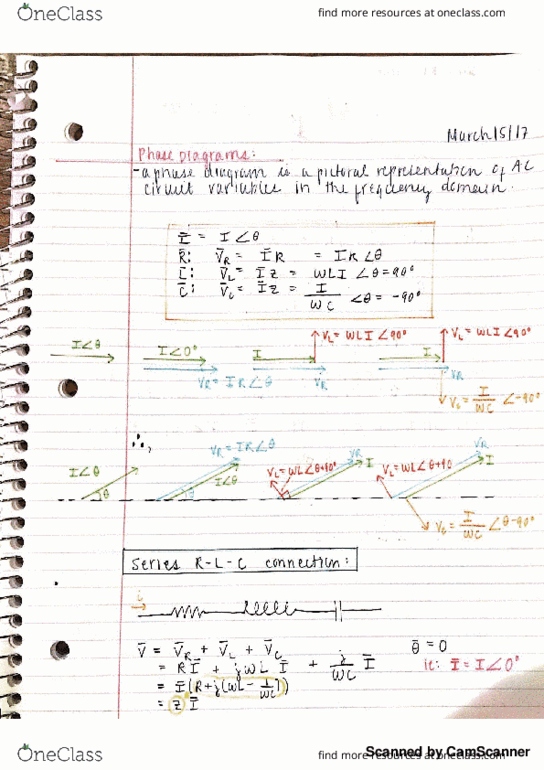 OneClass
find more resources at oneclass.com
March 15/17
Phase Diagrams:
-a phase diagram is a pictoral representation of AC
circuit variables in the frequency domain.
Ī = I∠θ
R: V̄R = ĪR = IR∠θ
L: V̄L = Īz = WLI ∠θ=90°
C: V̄C = Īz = I/WC ∠θ=-90°
I∠θ
I∠0°
VR = IR∠θ
I
VL = WLI∠90°
VR
I
VL = WLI∠90°
VR
VC = I/WC ∠-90°
∴,
I∠θ
θ
VR = IR∠θ
I∠θ
θ
VL = WL∠θ+90°
VR
I
VL = WL∠θ+90
VR
I
VC = I/WC ∠θ-90°
Series R-L-C connection:
i
V̄ = V̄R + V̄L + V̄C
= RĪ + jWL Ī + j/WC Ī
= Ī(R+j(WL - 1/WC))
= z Ī
θ̄ = 0
ie: Ī = I∠0°
OneClass
find more resources at oneclass.com
Scanned by CamScanner